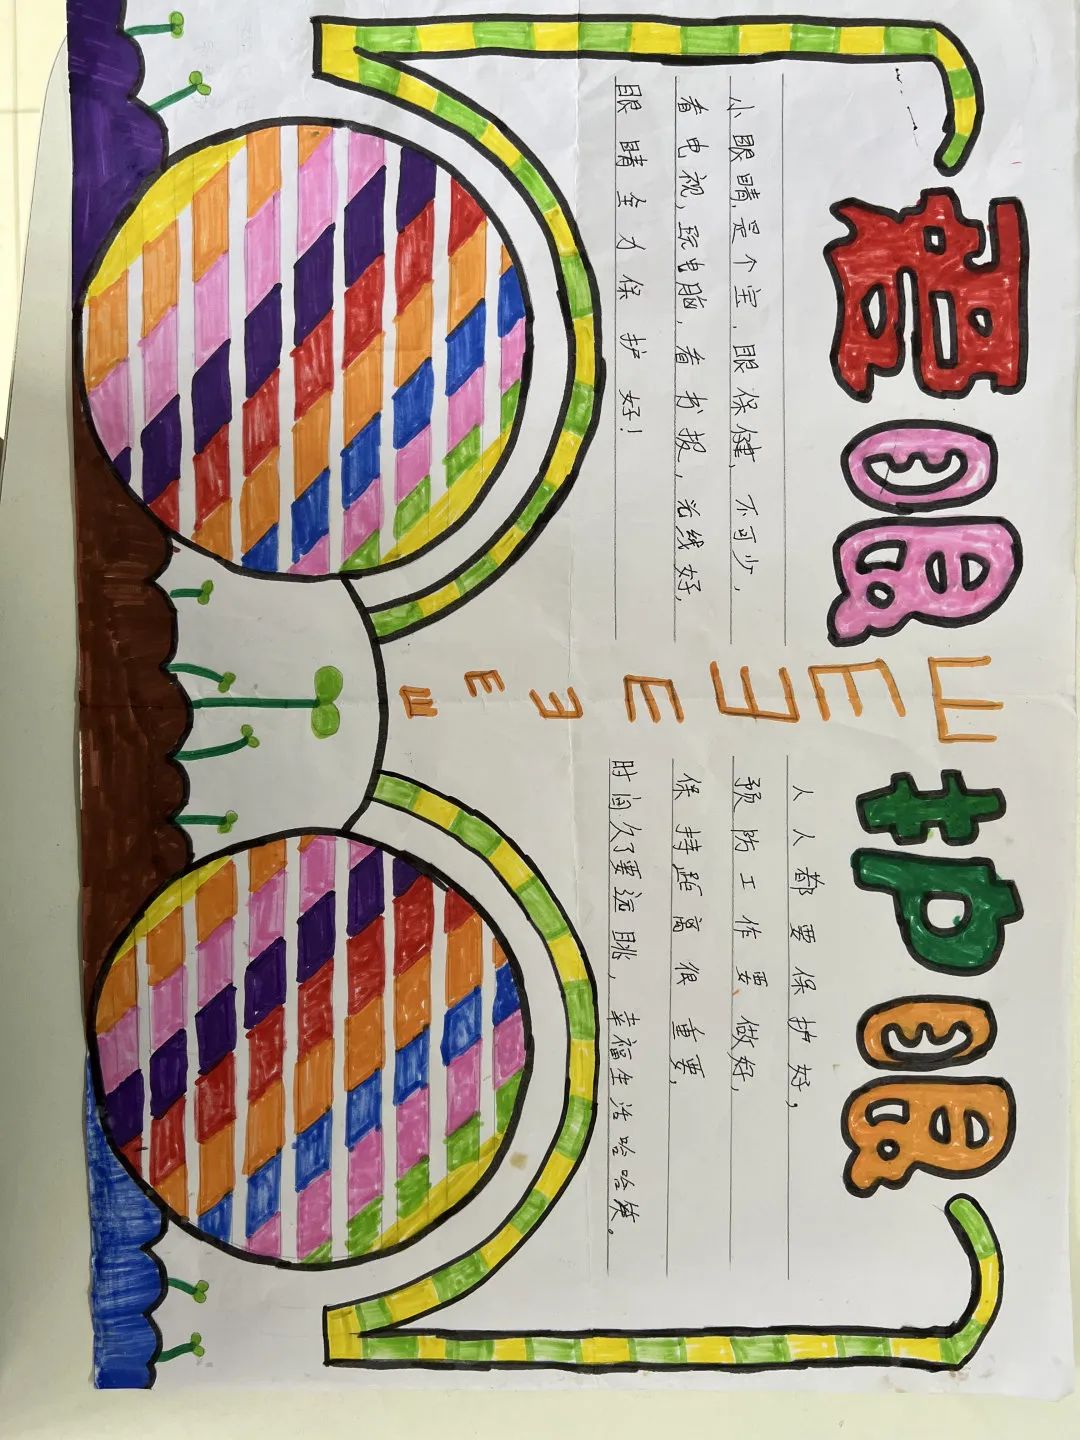 爱眼护眼
小眼睛,是个宝,眼保健,不可少,
看电视,玩电脑,看书报,光线好,
眼睛全力保护好!
E
E
E
E
E
E
E
人人都要保护好,
预防工作要做好,
保持距离很重要,
时间久了要远眺,幸福生活哈哈笑。